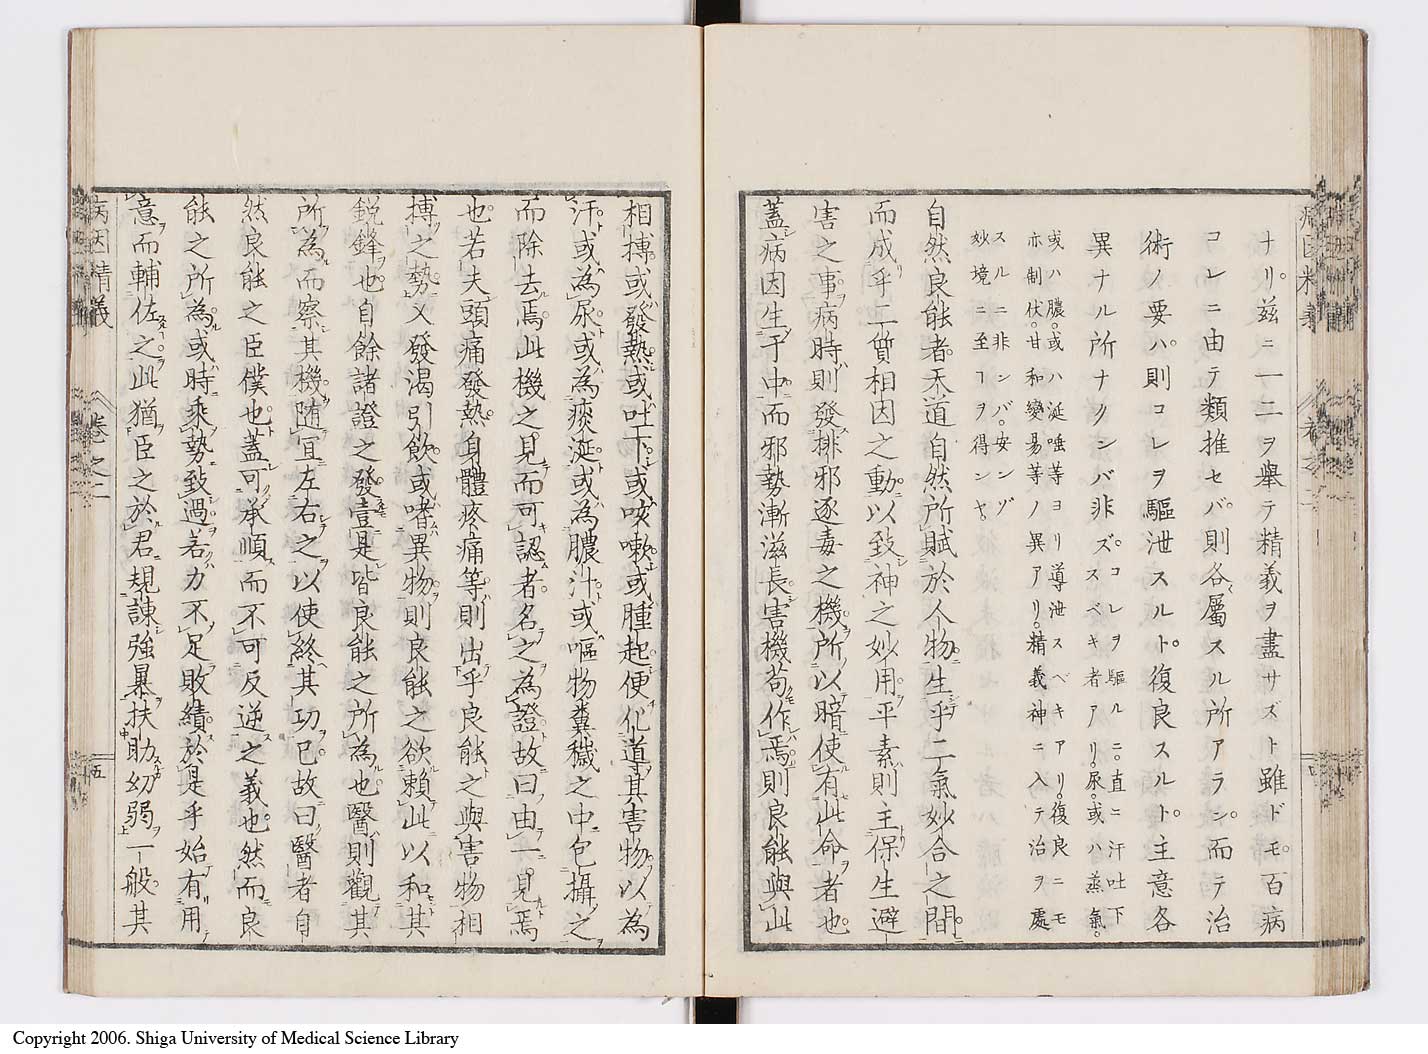 ナリ茲ニ一二ヲ舉テ精義ヲ盡サズト雖ドモ百病
コレニ由テ類推セバ則各屬スル所アラン而テ治
術ノ要ハ則コレヲ驅泄スルト復良スルト主意各
異ナル所ナクンバ非ズスベキ者アリ尿或ハ蒸氣
或ハ膿或ハ涎唾等ヨリ導泄スベキアリ復良ニモ
亦制伏甘和變易等ノ異アリ精義神ニ入テ治ヲ處
スルニ非ンバ安ンゾ
妙境ニ至ヿヲ得ンヤ
自然良能者天道自然所賦於人物生乎二氣妙合之間
而成乎二質相因之動以致神之妙用平素則主保生避
害之事病時則發排邪逐毒之機所以暗使有此命者也
蓋病因生于中而邪勢漸滋長害機苟作焉則良能與此
相搏或發熱或吐下或咳嗽或腫起便化導其害物以為
汗或為尿或為痰涎或為膿汁或嘔物糞穢之中包攝之
而除去焉此機之見而可認者名之為證故曰由一見焉
也若夫頭痛發熱身體疼痛等則出乎良能之與害物相
搏之勢又發渴引飲或嗜異物則良能之欲賴此以和其
鋭鋒也自餘諸證之發壹是皆良能之所為也醫則觀其
所為而察其機随宜左右之以使終其功已故曰醫者自
然良能之臣僕也蓋可承順而不可反逆之義也然而良
能之所為或時乘勢致過若力不足敗績於是乎始有用
意而輔佐之此猶臣之於君規諫強暴扶助幼弱一般其
病因精義 卷之二 五